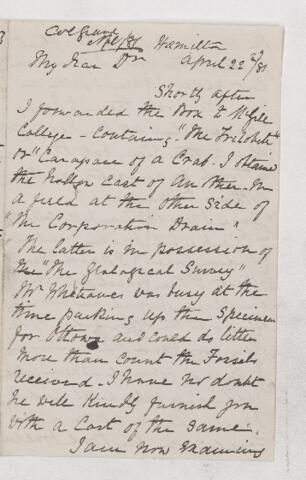 Col Grant Hamilton
My Dear Dr April 22nd/81
Shortly after
I forwarded the Box to McGill
College - containing "The Trilobite"
or "Carapace of a Crab. I obtained
the hollow cast of another. In
a field at the other side of
"The Corporation Drain".
The latter is in possession of
the "The Geological Survey"
Mr Whiteaves was busy at the
time packing up the Specimens
for Ottawa and could do little
more than count the Fossils
received. I have no doubt
he will kindly furnish you
with a Cast of the same.
I am now examining